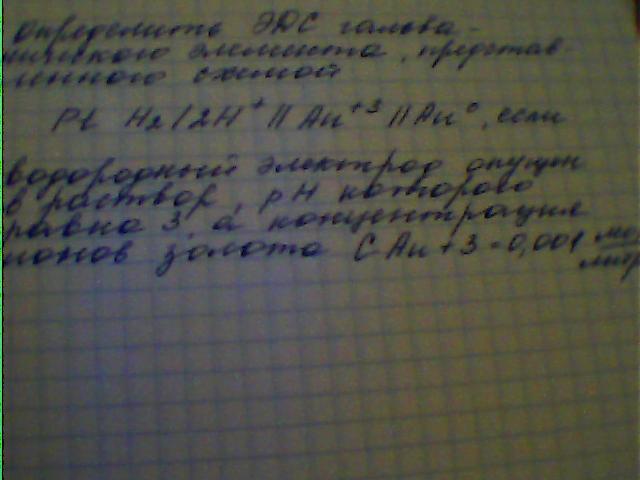 определить ЭДС гальва-
нического элемента, представ-
ленного схемой
Pt H2 / 2H+ // Au+3 // Au0, если
водородный электрод опущен
в раствор, pH которого
равно 3, а концентрация
ионов золота C Au+3=0,001 моль
литр